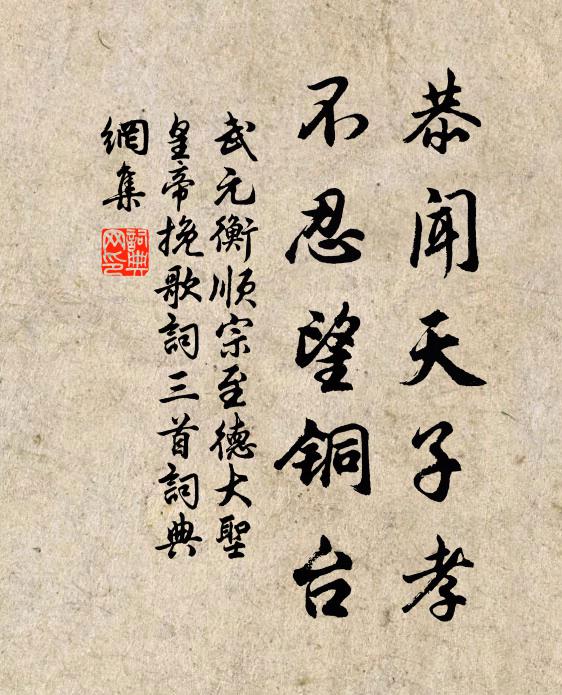 恭闻天子孝
不忍望铜台
武元衡顺宗至德大聖
皇帝挽歌詞三首詞典
網集
詞典网印